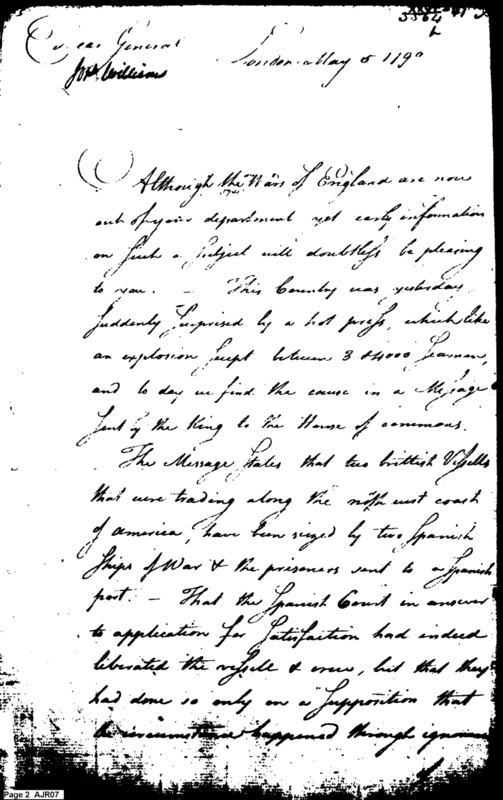 3364
Dear General
Jon. Williams
London May 5 1790
Although the Wars of England are now
out of your department yet early information
on such a Subject will doubtless be pleasing
to you. — This Country was yesterday
suddenly surprised by a hot press, which like
an explosion swept between 3 & 4000 Seamen,
and to day we find the cause in a Message
sent by the King to the House of commons.
The Message States that two brittish Vessells
that were trading along the north west coast
of america, have been seized by two Spanish
Ships of War & the prisoners sent to a Spanish
port. — That the Spanish Court in answer
to application for Satisfaction had indeed
liberated the vessell & crew, but that they
had done so only on a Supposition that
the circumstance happened through
of
Page 2 AJR07